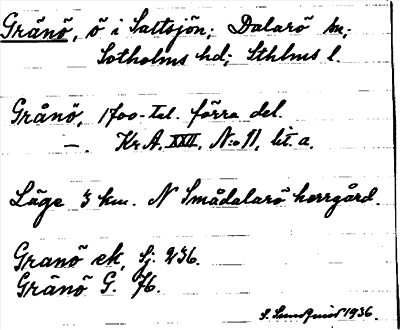 Gränö, ö i Saltsjön; Dalarö sn;
Sotholms hd; Sthlms l.
Grånö, 1700-tal. förra del.
—. Kr A, XXII, N:o 11, lit. a.
Läge 3 km. N Smådalarö herrgård.
Granö ek, Sj. 236.
Gränö G. 76.
S. Sundquist 1936.